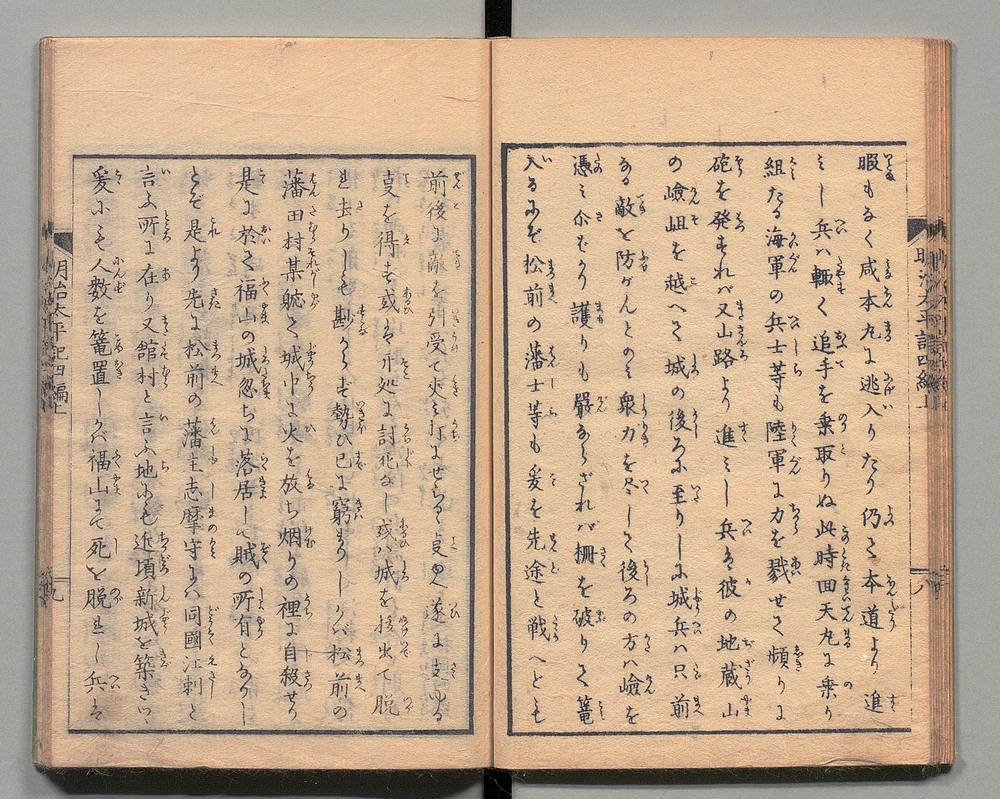 暇もなく咸本丸に逃入りたり仍て本道より進
ミし兵ハ輙く追手を乗取りぬ此時回天丸に乗り
組たる海軍の兵士等も陸軍に力を戮せて頻りに
砲を発すれバ又山路より進ミし兵は彼の地蔵山
の嶮岨を越へて城の後ろに至りしに城兵ハ只前
なる敵を防がんとのミ衆力を尽して後ろの方ハ嶮を
憑ミ亦をかり護りも嚴ならざれバ柵を破りて篭
入るにぞ松前の藩士等も爰を先途と戦へども
前後に敵を引受て夾ミ打にせらるゝ事ゆゑ遂に支ゆる
事を得ず或は其処に討死なし或ハ城を抜出て脱
れ去りしも尠からず勢ひ已に窮まりしかバ松前の
藩田村某躬ら城中に火を放ち烟りの裡に自殺せり
是に於て福山の城忽ちに落居して賊の所有となりし
とぞ是より先に松前の藩主志摩守にハ同國江刺と
言ふ所に在り又館村と言ふ地にも近頃新城を築きつゝ
爰にも人数を篭置しかバ福山にて死を脱れし兵は
明治太平記四編上
八
明治太平記四編上
九